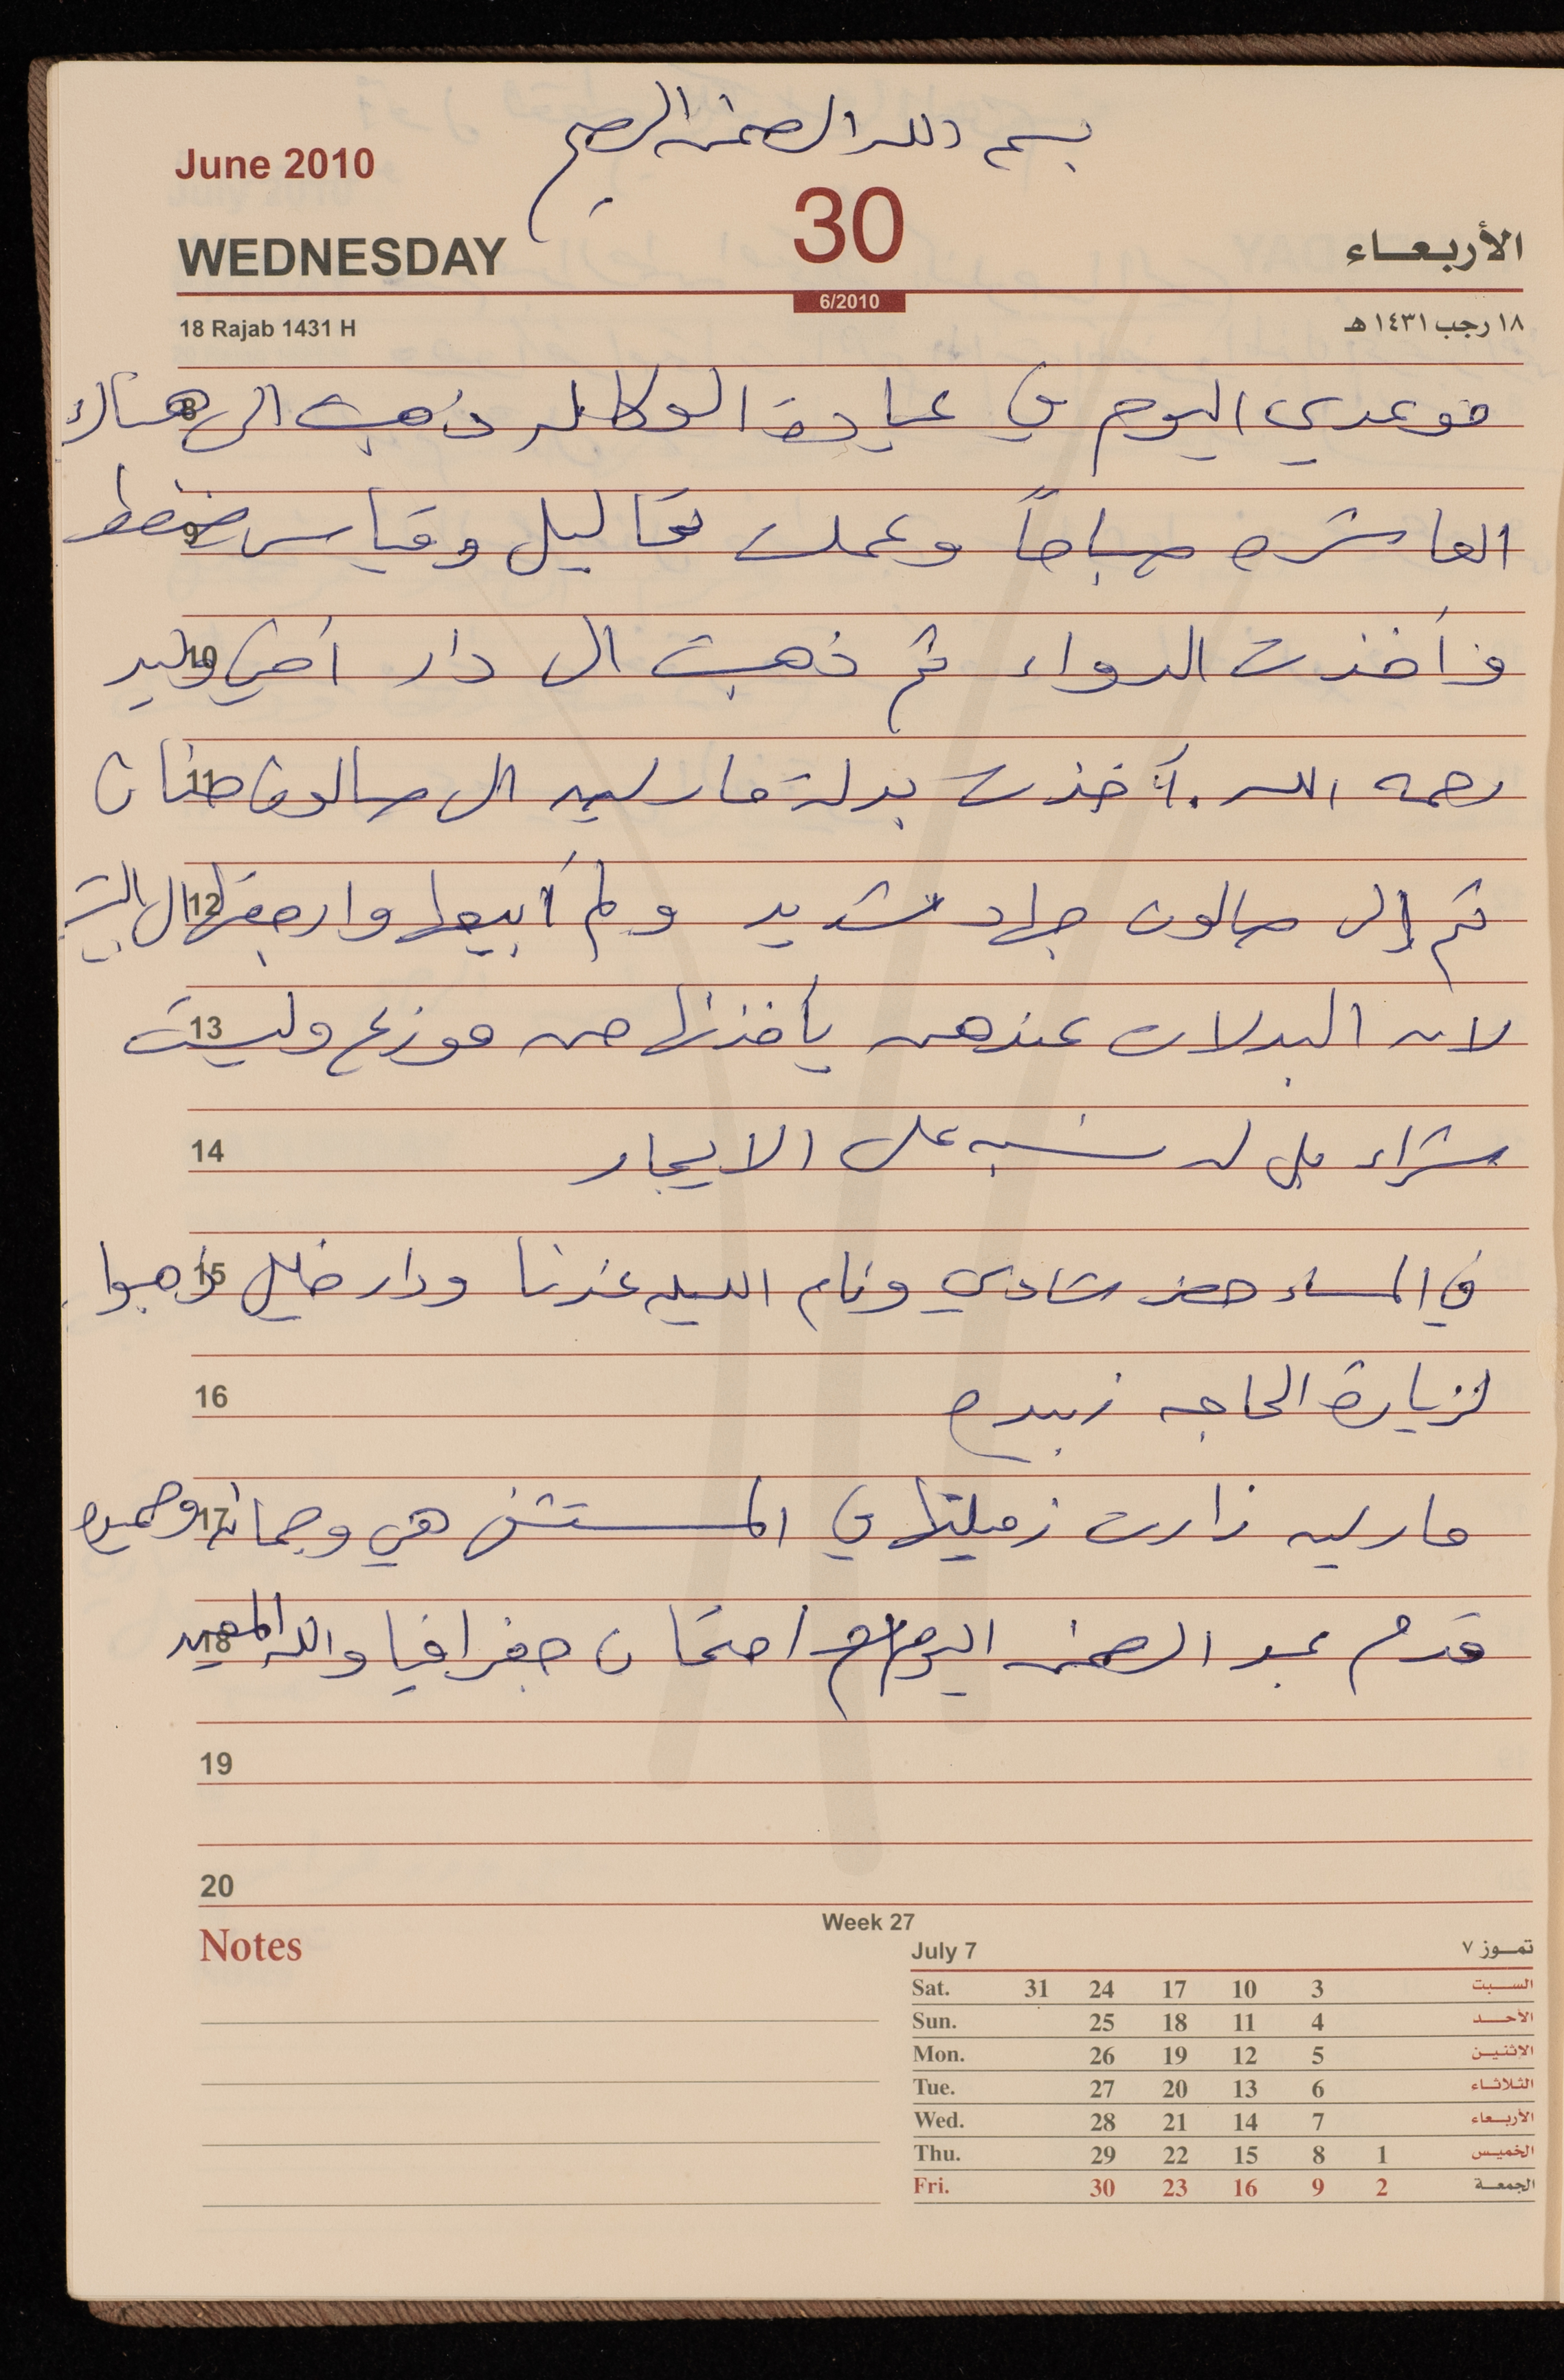 بسم الله الرحمن الرحيم
June 2010
30
WEDNESDAY
الأربعاء
6/2010
18 Rajab 1431 H
١٨ رجب ١٤٣١ هـ
موعدي اليوم في عيادة الوكالة ذهبت الى هناك
8
العاشره صباحاً وعملت تحاليل وقياس ضغط
9
وأخذت الدواء ثم ذهبت الى دار أخي وليد
10
رحمه الله. أخذت بدلة مارليه الى صالون حنان
11
ثم إلى صالون جهاد شديد ولم أبيعها وارجعتها الى البيت
12
لانه البدلات عندهم يأخذنها من موزع وليست
13
شراء بل له نسبه على الايجار
14
في المساء حضر شادي ونام الليله عندنا ودار خليل ذهبوا
15
لزيارة الحاجه زبيده
16
مارليه زارت زميلتها في المستشفى هي وجمانه وحميده
17
قدم عبد الرحمن اليوم امتحان جغرافيا والله المعين
18
19
20
Notes
Week 27
July 7 تموز ٧
Sat. 31 24 17 10 3 السبت
Sun. 25 18 11 4 الأحد
Mon. 26 19 12 5 الاثنين
Tue. 27 20 13 6 الثلاثاء
Wed. 28 21 14 7 الأربعاء
Thu. 29 22 15 8 1 الخميس
Fri. 30 23 16 9 2 الجمعة